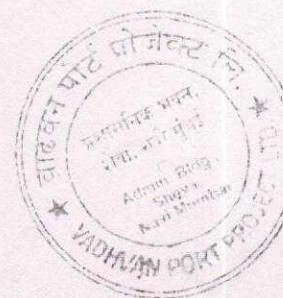 वाढवण पोर्ट प्रोजेक्ट लि.
प्रशासनिक भवन,
शेवा, नवी मुंबई
Admin Bldg.,
Sheva,
Navi Mumbai
VADHVAN PORT PROJECT LTD